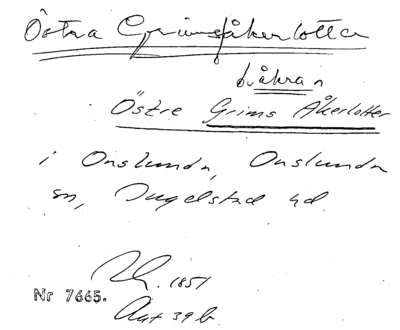 Östra Grimsåkerlotta
Östre Grims Åkerlotter
i Onslunda, Onslunda
sn, Ingelstad hd.
1851
Nr 7665.
Akt 39 b.